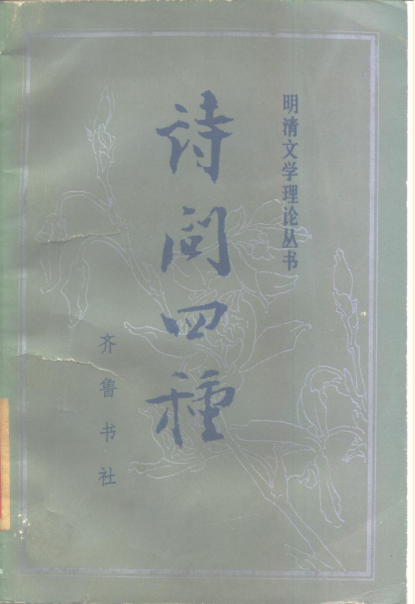 明清文学理论丛书
詩问四種
齐鲁书社